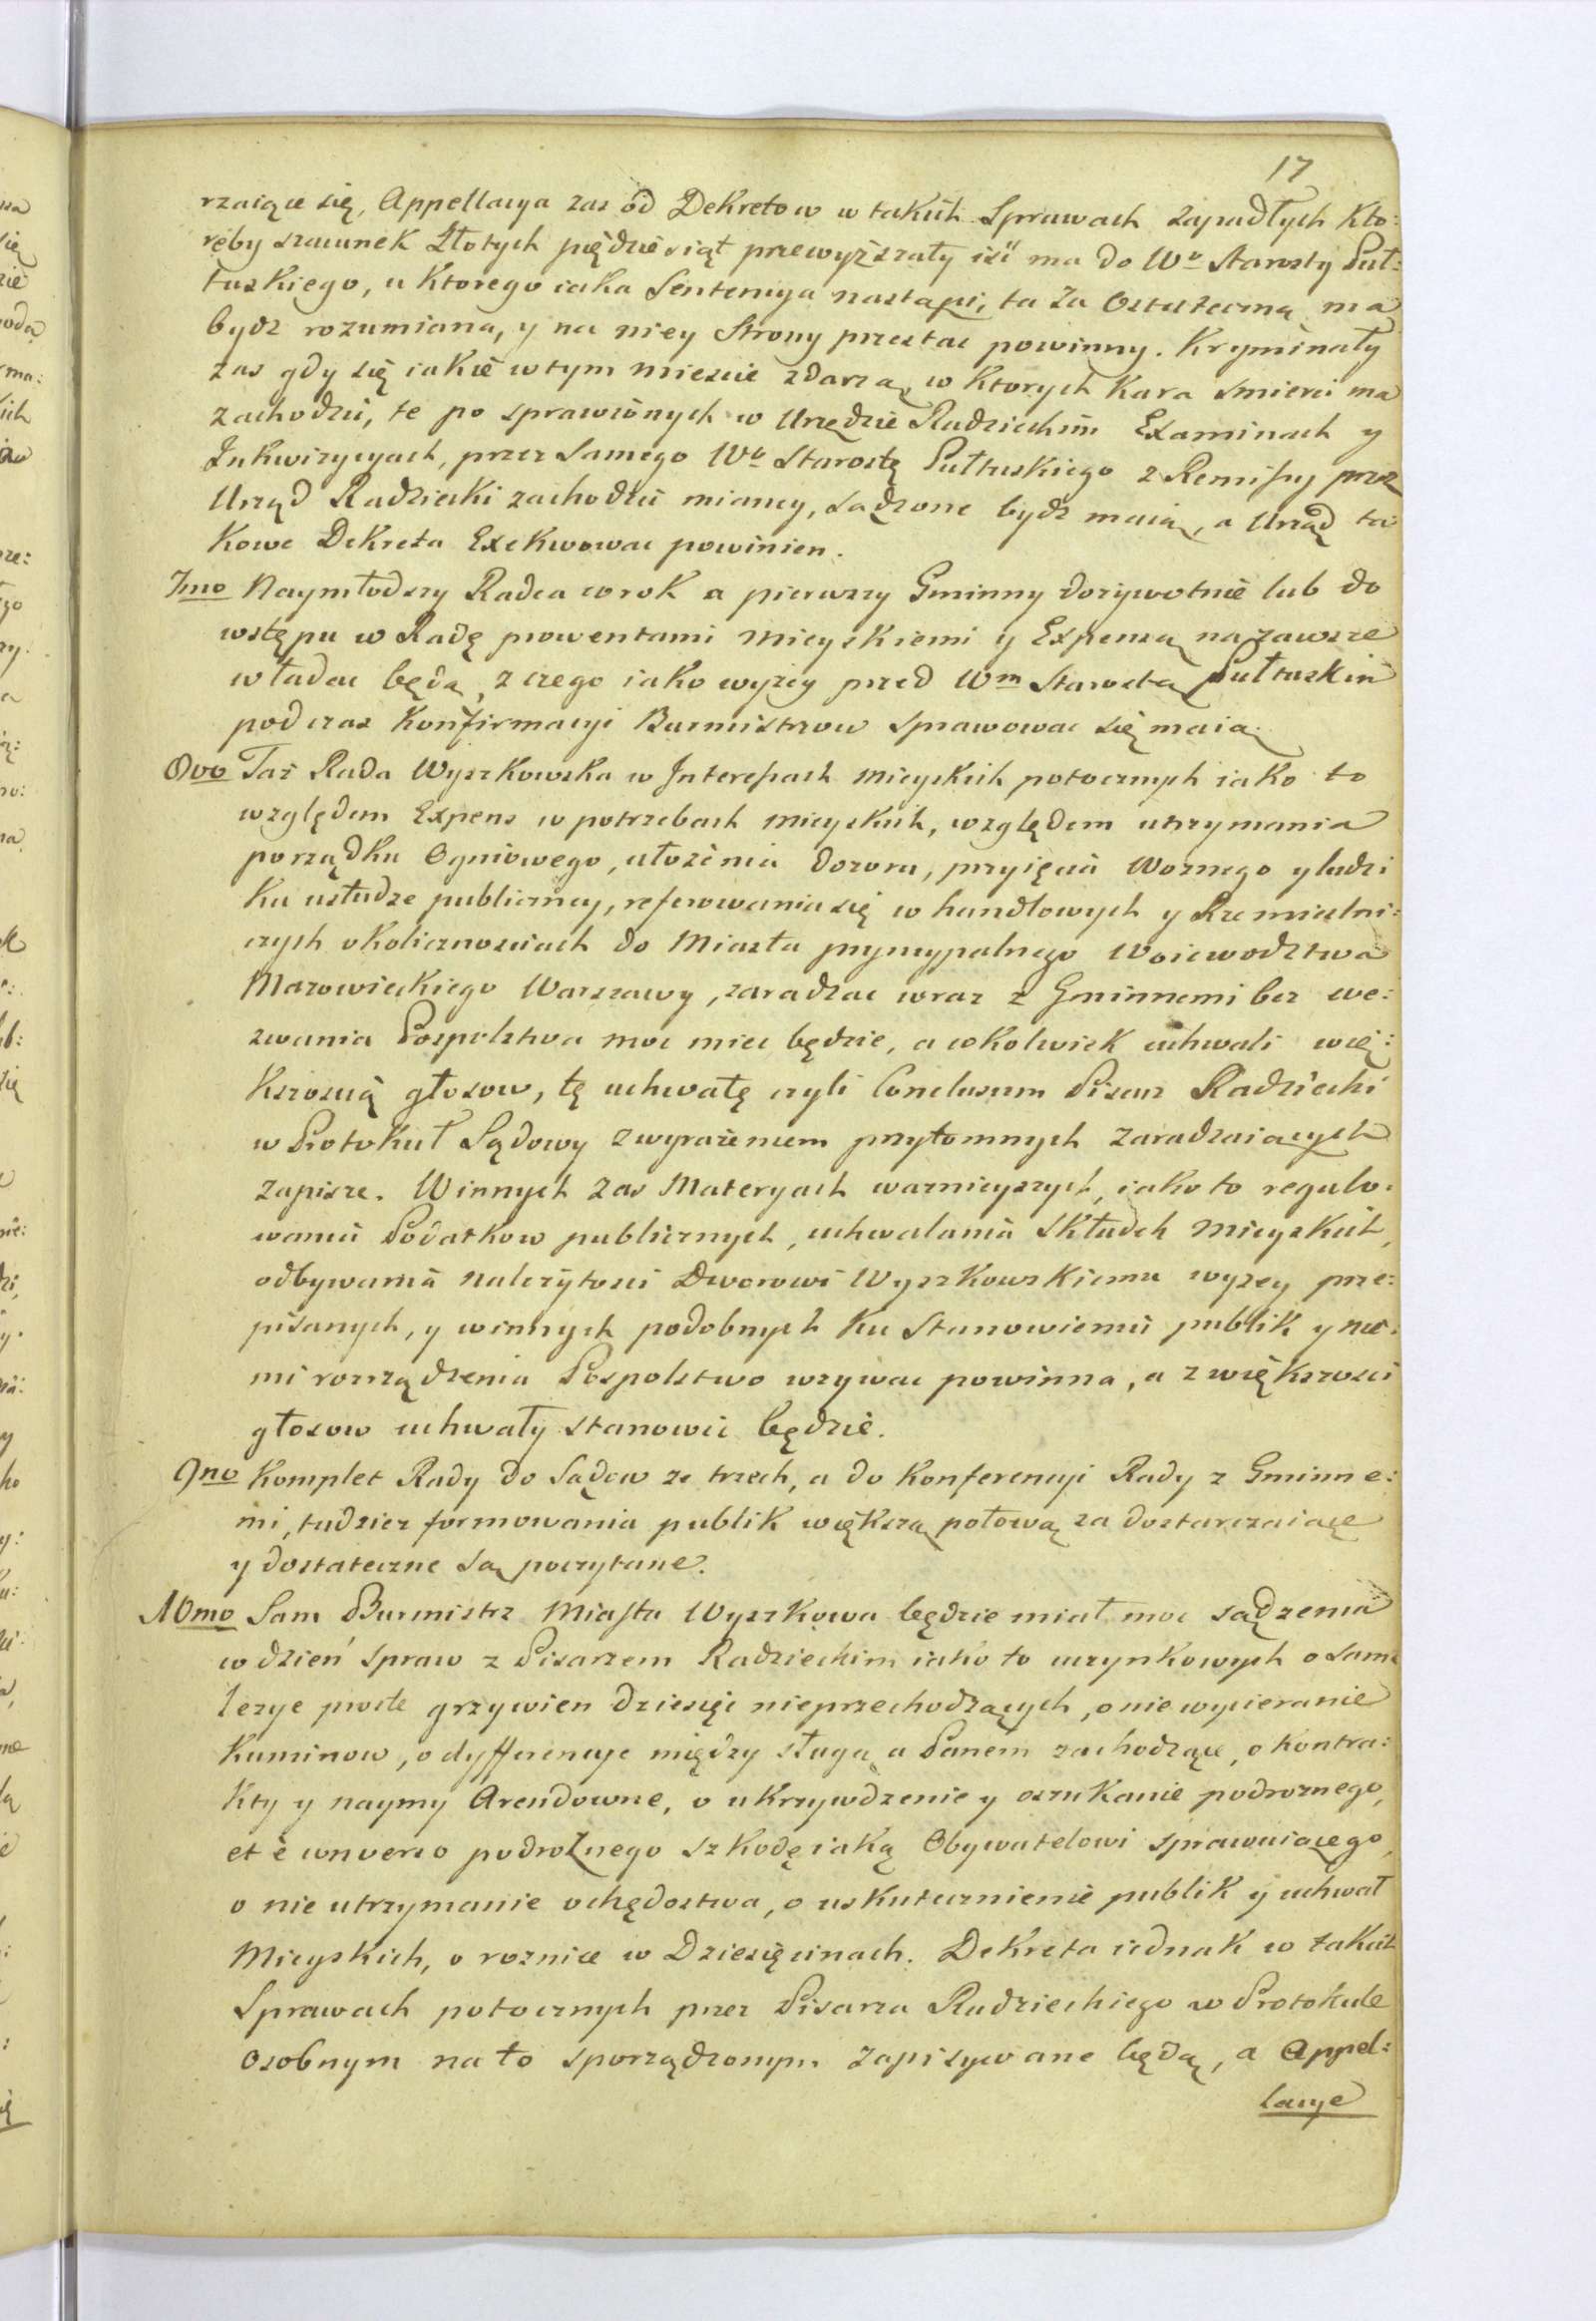 17
rzaiące się, Appellacya zas od Dekretow w takich Sprawach zapadłych kto:
reby szacunek Złotych pięćdziesiąt przewyższały iść ma do Wo Starosty Puł:
tuskiego, u ktorego iaka Sentencya nastąpi, ta za Ostateczną ma
bydz rozumiana, y na niey Strony przestac powinny. Kryminały
zas gdy się iakie w tym miescie zdarzą, w ktorych kara smierci ma
zachodzić, te po sprawionych w Urzędzie Radzieckim Examinach y
Inkwizycyach, przez Samego Wo Starostę Pułtuskiego z Remissy przez
Urząd Radziecki zachodzić maiącey, sądzone bydz maią, a Urząd ta
kowe Dekreta Exekwowac powinien.
7mo Naymłodszy Radca co rok a pierwszy Gminny dożywotnie lub do
wstępu w Radę prowentami mieyskiemi y Expensą na zawsze
władac będą, z czego iako wyżey przed Wm Starostą Pułtuskim
podczas Konfirmacyi Burmistrzow sprawowac się maią.
8vo Taż Rada Wyszkowska w Interessach mieyskich potocznych iako to
względem Expens w potrzebach mieyskich, względem utrzymania
porządku Ogniowego, ułożenia dozoru, przyięcia Woznego y ludzi
ku usłudze publiczney, referowania się w handlowych y Rzemieslni:
czych okolicznosciach do Miasta pryncypalnego Woiewodztwa
Mazowieckiego Warszawy, zaradzac wraz z Gminnemi bez we:
zwania Pospolstwa moc miec będzie, a cokolwiek uchwali wię:
kszoscią głosow, tę uchwałę czyli Conclusum Pisarz Radziecki
w Protokuł Sądowy z wyrażeniem przytomnych zaradzaiących
zapisze. W innych zas Materyach ważnieyszych, iako to regulo:
wania Podatkow publicznych, uchwalania składek mieyskich,
odbywania należytosci Dworowi Wyszkowskiemu wyżey prze:
pisanych, y w innych podobnych ku Stanowieniu publik y nie:
mi rozrządzenia Pospolstwo wzywac powinna, a z większosci
głosow uchwały stanowić będzie.
9no Komplet Rady do Sądow ze trzech, a do Konferencyi Rady z Gminne:
mi, tudziez formowania publik większą połową za dostarczaiące
y dostateczne są poczytane.
10mo Sam Burmistrz Miasta Wyszkowa będzie miał moc sądzenia
w dzień spraw z Pisarzem Radzieckim iako to uczynkowych o sam:
lezye proste grzywien dziesięć nieprzechodzących, o nie wycieranie
kuminow, o dyfferencye między sługą a Panem zachodzące, o kontra:
kty y naymy Arendowne, o ukrzywdzenie y oszukanie podroznego,
et è converso podrożnego szkodę iaką Obywatelowi sprawuiącego,
o nie utrzymanie ochędostwa, o uskutecznienie publik y uchwał
Mieyskich, o roznice w Dziesięcinach. Dekreta iednak w takich
Sprawach potocznych przez Pisarza Radzieckiego w Protokule
osobnym na to sporządzonym zapisywane będą, a Appel:
lacye